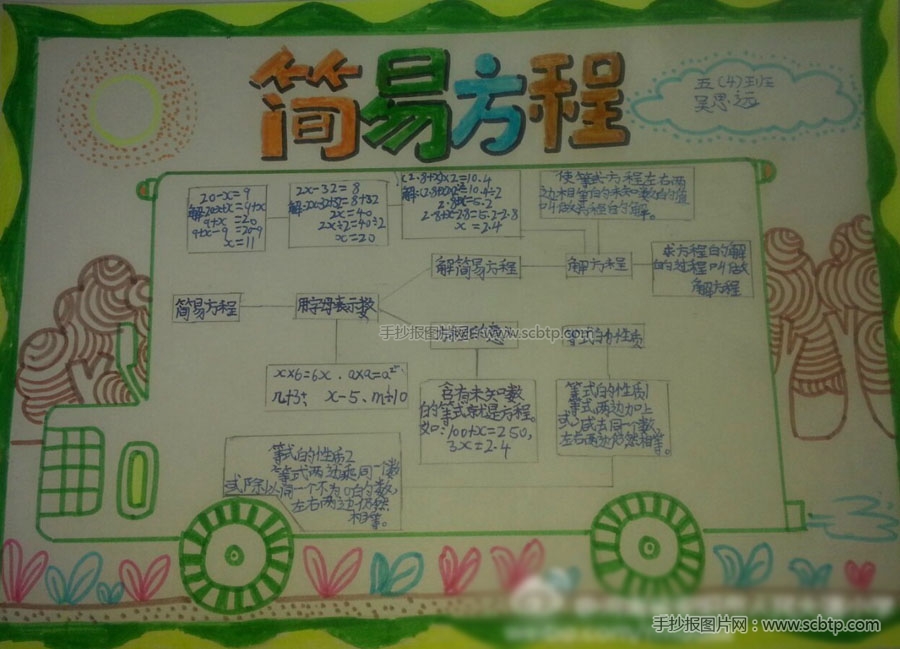 简易方程
五(4)班
吴思远
20-x=9
解:20-x+x=9+x
9+x=20
9+x-9=20-9
x=11
2x-32=8
解:2x-32+32=8+32
2x=40
2x÷2=40÷2
x=20
(2.8+x)×2=10.4
解:(2.8+x)×2÷2=10.4÷2
2.8+x=5.2
2.8+x-2.8=5.2-2.8
x=2.4
使等式方程左右两
边相等的未知数的值
叫做方程的解。
求方程的解
的过程叫做
解方程
解简易方程
解方程
简易方程
用字母表示数
手抄报图片网:www.scbtp.com
等式的性质
x×6=6x、a×a=a²
n+3、x-5、m÷10
含有未知数
的等式就是方程。
如:100+x=250,
3x=2.4
等式的性质1
等式两边加上
或减去同一个数,
左右两边仍然相等。
等式的性质2
等式两边乘同一个数
或除以同一个不为0的数,
左右两边仍然
相等。
手抄报图片网:www.scbtp.com